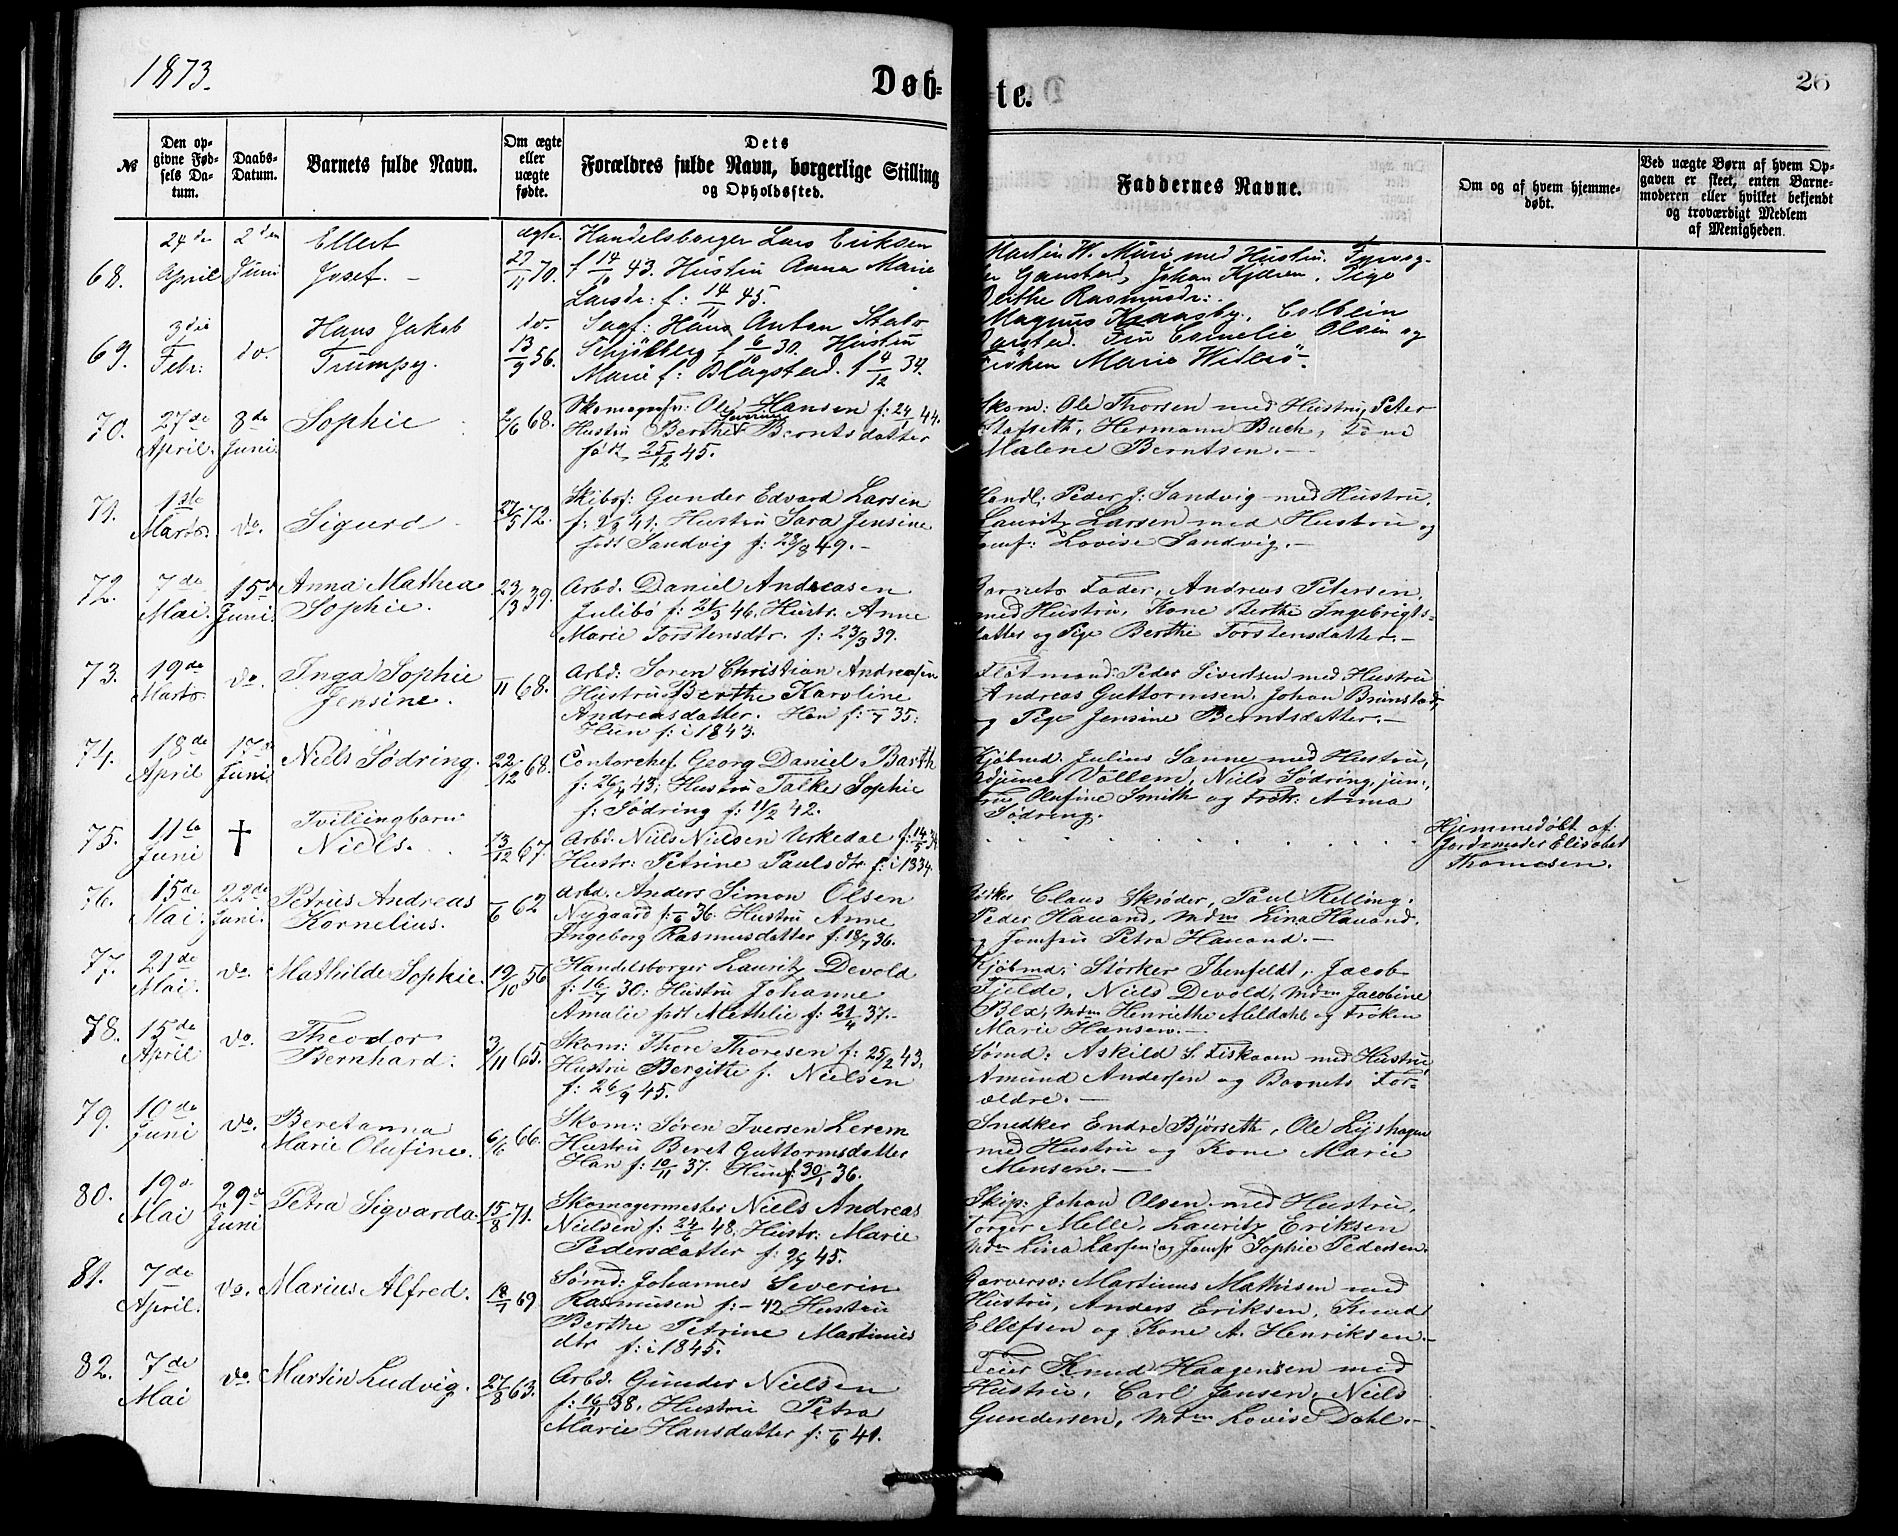 1873.
Døb-
te.
26
№
Den op-
givne Fød-
sels Da-
tum.
Daabs-
Datum.
Barnets fulde Navn.
Om ægte
eller
uægte
fødte.
Dets
Forældres fulde Navn, borgerlige Stilling
og Opholdssted.
Faddernes Navne.
Om og af hvem hjemme-
døbt.
Ved uægte Børn af hvem Op-
gaven er skeet, enten Barne-
moderen eller hvilket bekjendt
og troværdigt Medlem
af Menigheden.
68.
April
2den
Juni
Ellert
Josef. -
ægte
70.
Handelsborger Lars Eriksen
f 43. Hustru Anna Marie
Larsdr: f: 14/11 45.
Martin W. Muri med Hustru.
Johan Kjøren, Pige
Berthe Rasmusdr:.
69.
3die
Febr:
do.
Hans Jakob
Trumpy.
do.
13/9 56.
Sagf: Hans Anton Stabo
f 6/10 30. Hustru
Marie f: Blagstad. f 4/12 34.
Magnus Colbein
Fru Cornelie Olsen og
Frøken Marie
70.
27de
April.
8de
Juni
Sophie
2/6 68.
Skomagersv: Ole Hansen f: 44.
Hustru Berthe Severine Berntsdatter
født 25/12 45.
Skom: Ole Thorsen med Hustru, Peter
Stafseth, Hermann Buch, Kone
Malene Berntsen. -
71.
1ste
Marts.
do.
Sigurd
27/5 72.
Skibsf: Gunder Edvard Larsen
f: 41. Hustru Sara Jensine
født Sandvig f: 28/8 49. -
Handl: Peder J. Sandvig med Hustru,
Lauritz Larsen med Hustru og
Jomf: Lovise Sandvig. -
72.
7de
Mai.
15de
Juni.
Anna Mathea
Sophie.
39.
Arbd. Daniel Andreasen
Julibø f: 46. Hustr. Anne
Marie Torstensdtr. f: 23/3 39.
Barnets Fader, Andreas Petersen
med Hustru, Kone Berthe Ingebrigts-
datter og Pige Berthe Torstensdatter. -
73.
19de
Marts
do.
Inga Sophie
Jensine.
68.
Arbd: Søren Christian Andreasen
Hustru Berthe Karoline
Andreasdatter. Han f: 35.
Hun f: i 1843.
Flødmand: Peder Sivertsen med Hustru
Andreas Guttormsen, Johan Brunstad,
og Pige Jensine Berntsdatter. -
74.
18de
April
17de
Juni
Niels Sødring.
22/12 68.
Contorchef Georg Daniel Barth
f: 26/4 43. Hustru Talke Sophie
f: Sødring f: 11/2 42.
Kjøbmd. Julius Sanne med Hustru,
Vollem, Niels Sødring, jun:,
Fru Olufine Smith og Frøk: Anna
Sødring.
75.
11te
Juni
†
Tvillingbarn
Niels.
13/12 67.
Arbd. Niels Nielsen Urkedal f: 14/5 34
Hustr: Petrine Paulsdtr f: i 1834.
Hjemmedøbt af
Jordemoder Elisabet
Thomesen.
76.
15de
Mai.
22de
Juni.
Petrus Andreas
Kornelius.
62
Arbd. Anders Simon Olsen
Nygaard f: 36. Hustru Anne
Ingeborg Rasmusdatter f: 18/7 36.
Claus Skrøder, Paul Relling.
Peder Hauand, Mdm Lina Hauand.
og Jomfru Petra Hauand. -
77.
21de
Mai.
do.
Mathilde Sophie.
19/10 56
Handelsborger Lauritz Devold
f: 30: Hustru Johanne
Amalie født Mathelie f: 21/4 37. -
Kjøbmd: Størker Ibenfeldt, Jacob
Fjelde, Niels Devold, Mdm Jacobine
Blx, Mdm Henriethe Meldahl og Frøken
Marie Hansen. -
78.
15de
April
do.
Theodor
Bernhard.
3/11 65.
Skom: Thore Thoresen f: 25/2 43.
Hustru Bergitte f. Nielsen
f: 26/9 45.
Sømd: Askild S. Fiskaaen med Hustru,
Amund Andersen og Barnets For-
ældre. -
79.
10de
Juni
do.
Beretanna
Marie Olufine.
6/6 66.
Skom: Søren Iversen Lerem
Hustru Beret Guttormsdatter
Han f: 10/11 37. Hun f: 30/1 36.
Snedker Endre Bjørseth, Ole Lyshagen
med Hustru og Kone Marie
Monsen. -
80.
19de
Mai
29de
Juni
Petra Sigvarda.
15/8 71.
Skomagermester Niels Andreas
Nielsen f: 24/6 48. Hustr: Marie
Pedersdatter f: 9/7 45.
Skip: Johan Olsen med Hustru,
Torger Melle, Lauritz Eriksen
Mdm Lina Larsen og Jomfr Sophie Pedersen.
81.
7de
April.
do.
Marius Alfred.
18/1 69
Sømd: Johannes Severin
Rasmusen f: - 42 Hustru
Berthe Petrine Martinus
dtr f: i 1845.
Garversv: Martinus Mathisen med
Hustru, Anders Eriksen, Knud
Ellefsen og Kone A. Henriksen. -
82.
7de
Mai
do.
Martin Ludvig.
27/8 63.
Arbd. Gunder Nielsen
f: 16/11 38. Hustru Petra
Marie Hansdatter f: 41.
Feier Knud Haagensen med
Hustru, Carl Jensen, Niels
Gundersen, Mdm Lovise Dahl. -